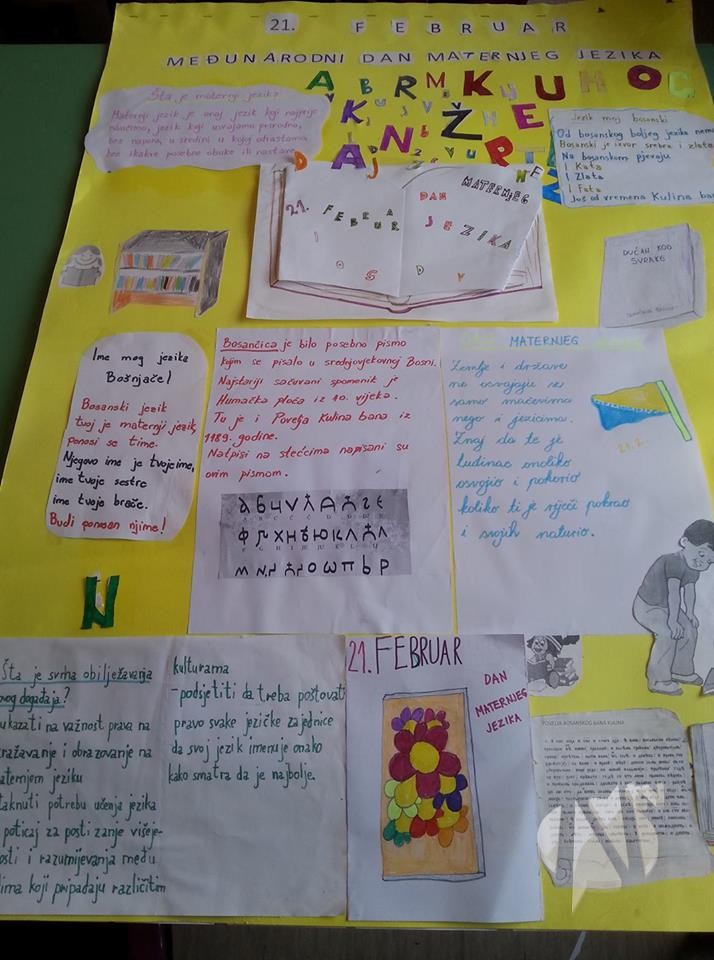 21. FEBRUAR
MEĐUNARODNI DAN MATERNJEG JEZIKA
Šta je maternji jezik?
Maternji jezik je onaj jezik koji najprije
naučimo, jezik koji usvajamo prirodno,
bez napora, u sredini u kojoj odrastamo
bez ikakve posebne obuke ili nastave.
Jezik moj bosanski
Od bosanskog boljeg jezika nema
Bosanski je izvor srebra i zlata
Na bosanskom pjevaju
I Kata
I Zlata
I Fata
Još od vremena Kulina bana
21. FEBRUAR
DAN
MATERNJEG
JEZIKA
DUĆAN KOD
SVRAKE
Ime mog jezika
Bošnjače!
Bosanski jezik
tvoj je maternji jezik,
ponosi se time.
Njegovo ime je tvoje ime,
ime tvoje sestre
ime tvoje braće.
Budi ponosan njime!
Bosančica je bilo posebno pismo
kojim se pisalo u srednjovjekovnoj Bosni.
Najstariji sačuvani spomenik je
Humačka ploča iz 10. vijeka.
Tu je i Povelja Kulina bana iz
1189. godine.
Natpisi na stećcima napisani su
ovim pismom.
MATERNJEG
Zemlje i države
ne osvajaju se
samo mačevima
nego i jezicima.
Znaj da te je
tuđinac onoliko
osvojio i pokorio
koliko ti je riječi pobrao
i svojih naturio.
21.2.
N
Šta je svrha obilježavanja
ovog događaja?
ukazati na važnost prava na
ražavanje i obrazovanje na
aternjem jeziku
taknuti potrebu učenja jezika
poticaj za postizanje višeje-
osti i razumijevanja među
dima koji pripadaju različitim
kulturama
-podsjetiti da treba poštovati
pravo svake jezičke zajednice
da svoj jezik imenuje onako
kako smatra da je najbolje.
21. FEBRUAR
DAN
MATERNJEG
JEZIKA
POVELJA BOSANSKOG BANA KULINA